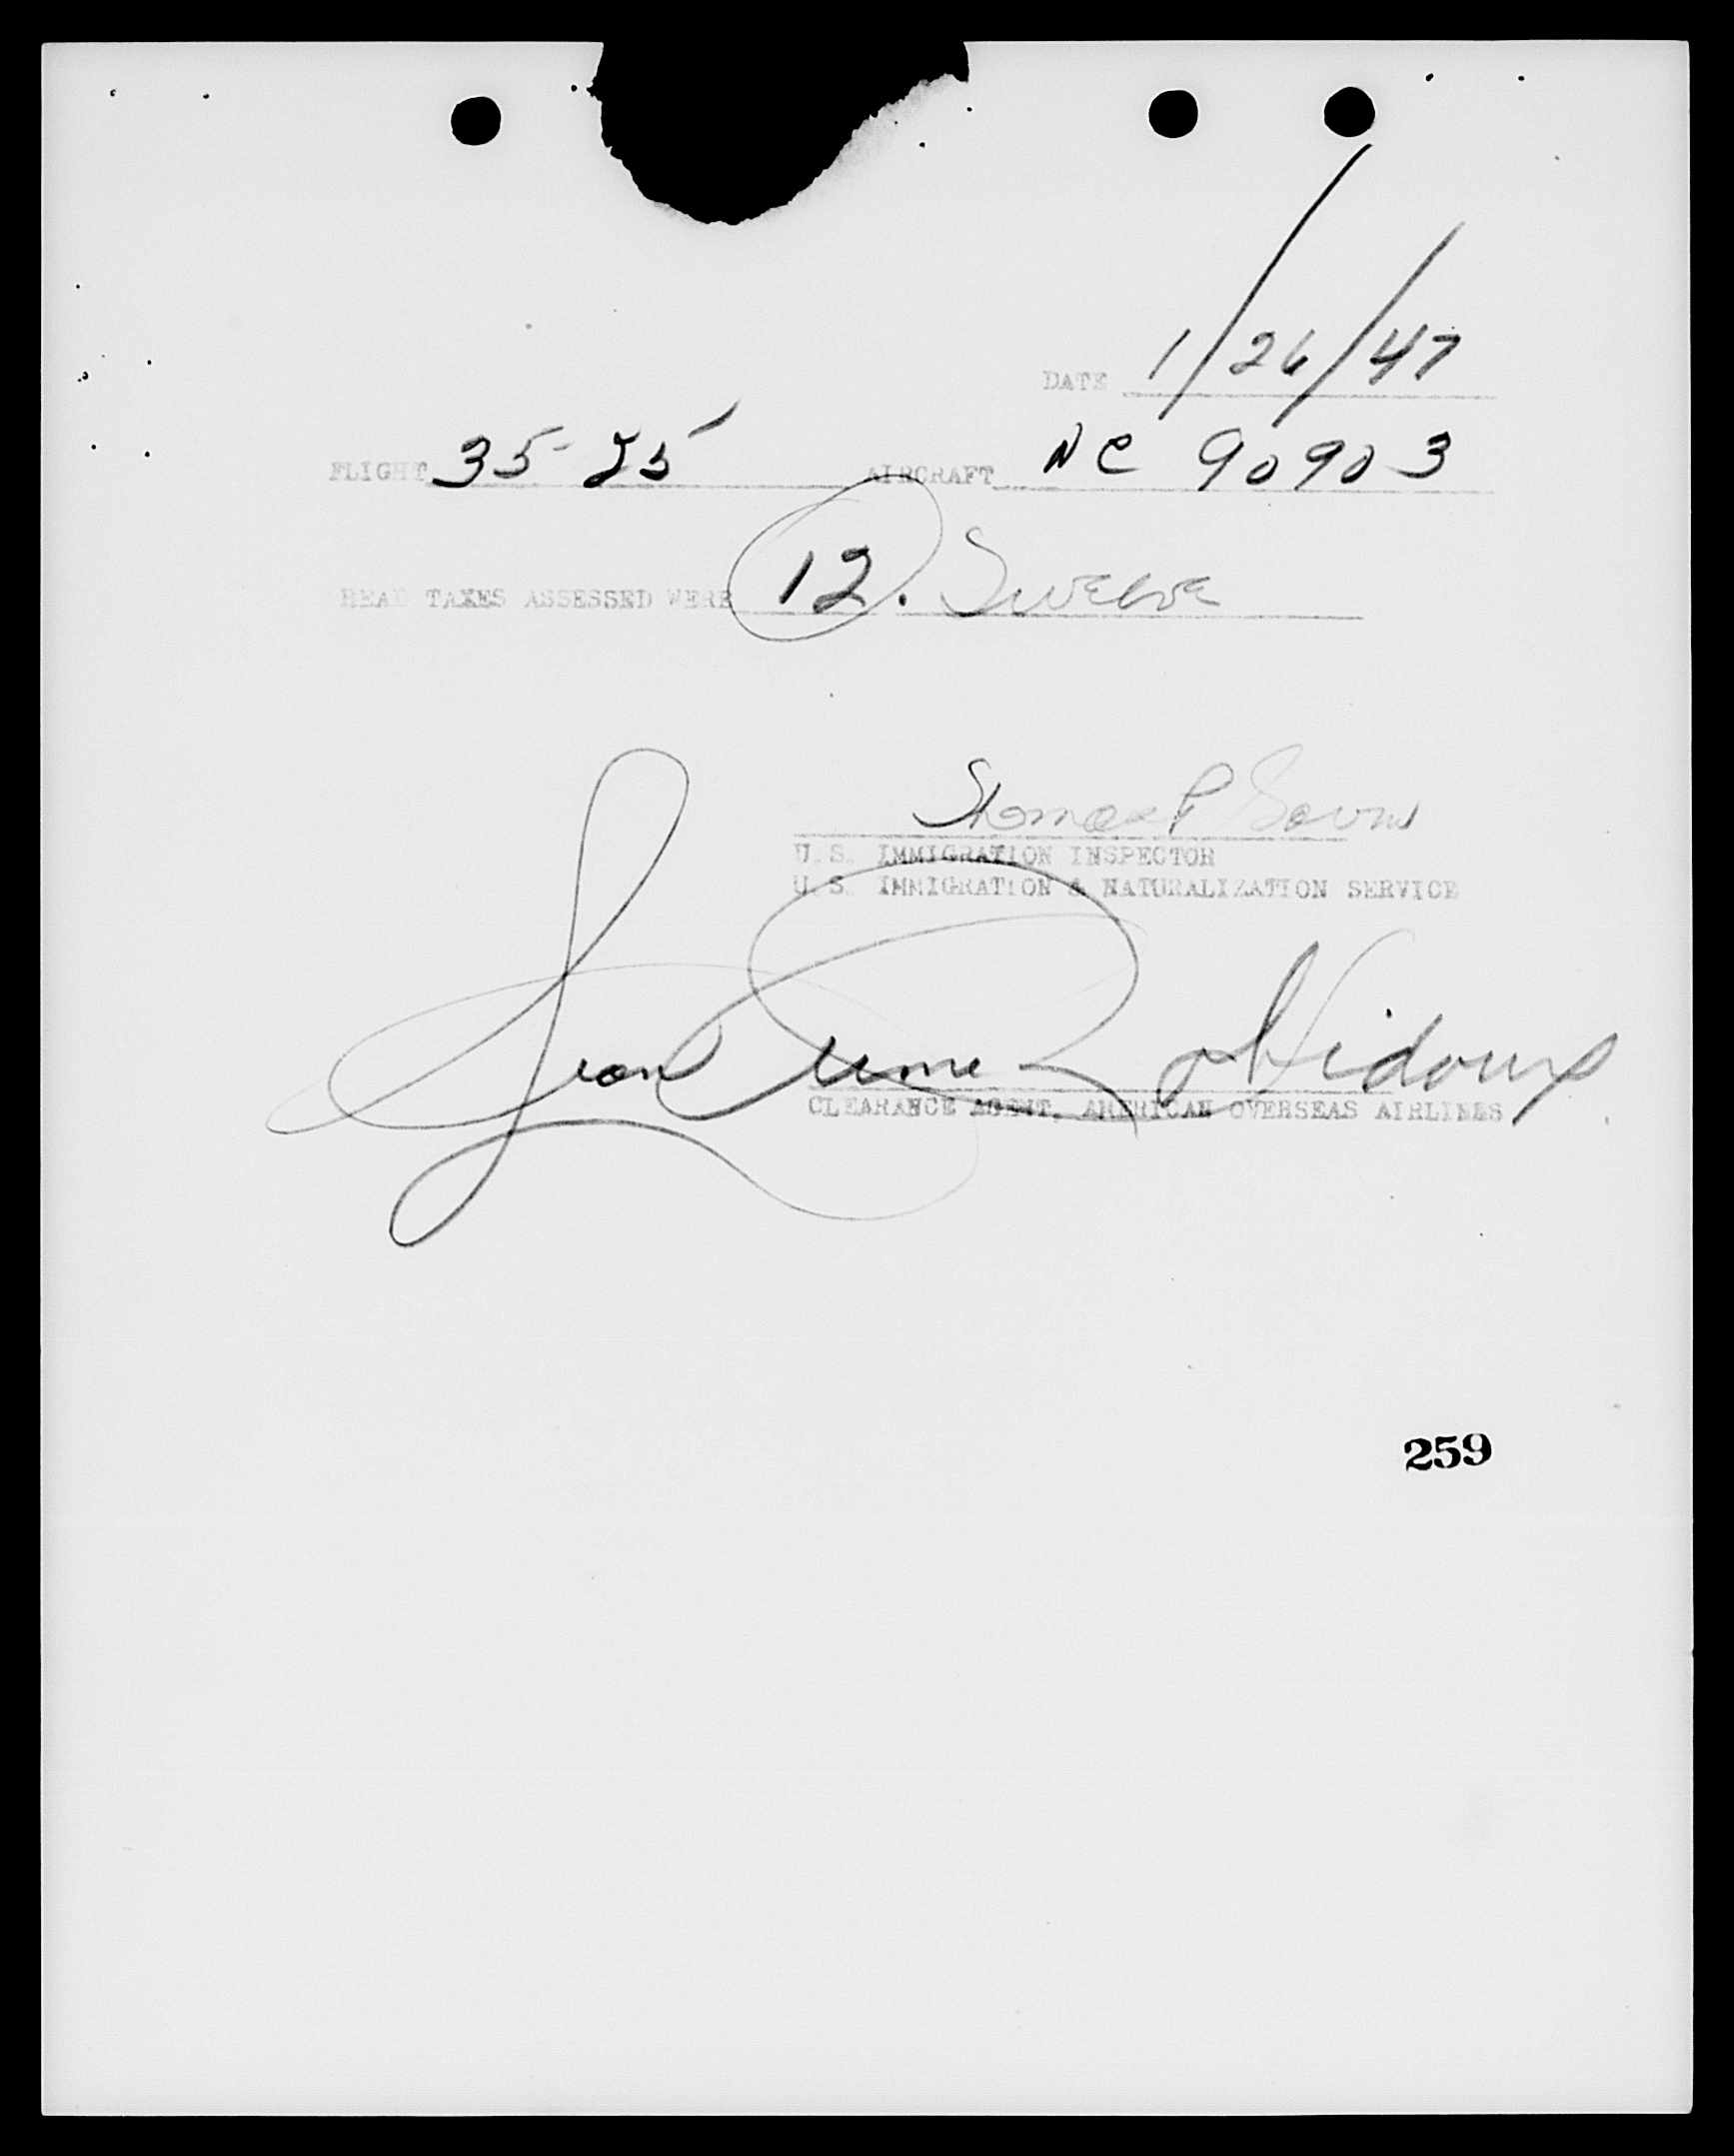 DATE 1/26/47
FLIGHT 35-25 AIRCRAFT NC 90903
HEAD TAXES ASSESSED WERE 12. Twelve
Thomas P
U. S. IMMIGRATION INSPECTOR
U. S. IMMIGRATION & NATURALIZATION SERVICE
Jean
CLEARANCE AGENT, AMERICAN OVERSEAS AIRLINES
259